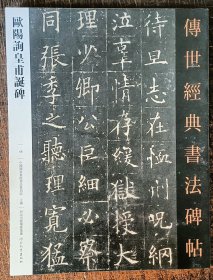 傳世經典書法碑帖
待旦志在恤刑呪網
泣辜情存緩獄授大
理少卿公巨細必察
同張季之聽理寬猛
歐陽詢皇甫誕碑